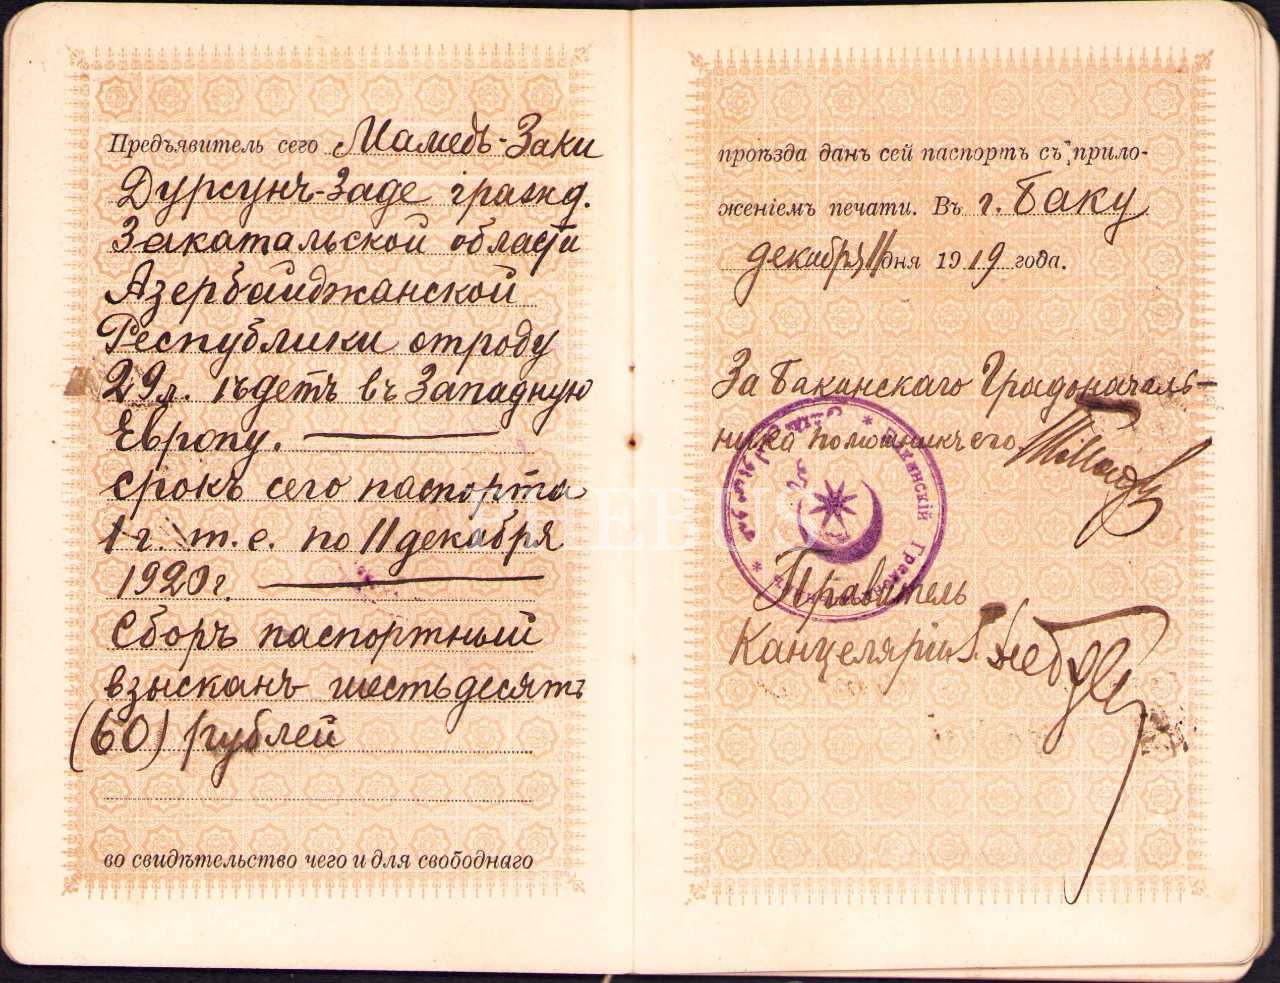 Предъявитель сего Мамедъ-Заки
Дурсунъ-Заде гражд.
Закатальской области
Азербайджанской
Республики отроду
29 л. ѣдетъ въ Западную
Европу.
Срокъ сего паспорта
1 г. т.е. по 11 декабря
1920 г.
Сборъ паспортный
взысканъ шестьдесятъ
(60) рублей
во свидѣтельство чего и для свободнаго
проѣзда данъ сей паспортъ съ прило-
женіемъ печати. Въ г. Баку
декабря 11 дня 1919 года.
За Бакинскаго Градоначаль-
ника помошникъ его
Правитель
Канцеляріи
* Бакинскій
PHEBUS